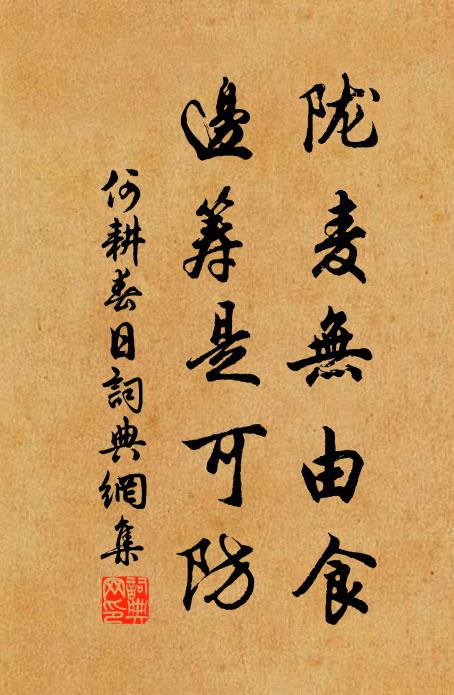 陇麦無由食
邊筹是可防
何耕春日詞典網集
詞典
网印